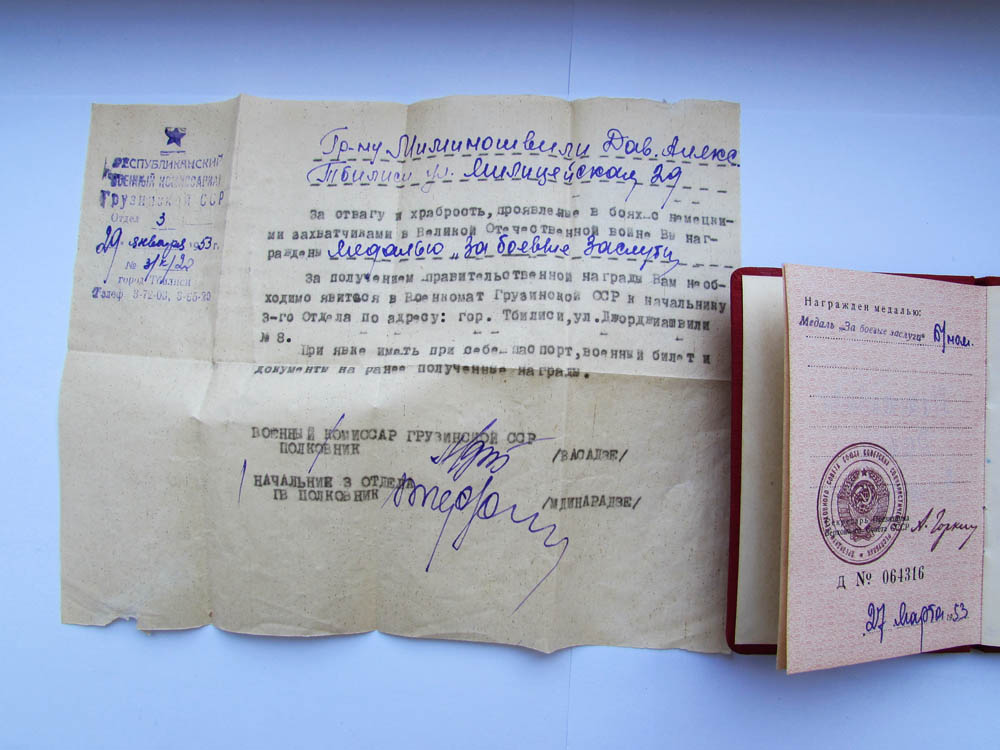 РЕСПУБЛИКАНСКИЙ
ВОЕННЫЙ КОМИССАРИАТ
Грузинской ССР
Отдел 3
29 января 1953 г.
№ 3/к/20
город Тбилиси
Телеф. 3-72-03,
Гр-ну Миминошвили Дав. Алекс
Тбилиси ул. 29
За отвагу и храбрость, проявленые в боях с немецки-
ми захватчиками в Великой Отечественной войне Вы наг-
раждены Медалью „За боевые заслуги
За получением правительственной награды Вам необ-
ходимо явиться в Военкомат Грузинской ССР к начальнику
3-го Отдела по адресу: гор. Тбилиси, ул. Джорджиашвили
№ 8.
При явке иметь при себе паспорт, военный билет и
документы на ранее полученные награды.
ВОЕННЫЙ КОМИССАР ГРУЗИНСКОЙ ССР
ПОЛКОВНИК /ВАСАДЗЕ/
НАЧАЛЬНИК 3 ОТДЕЛА
ГВ ПОЛКОВНИК /МДИНАРАДЗЕ/
Награжден медалью:
Медаль „За боевые заслуги" б/ном.
Секретарь Президиума
Верховного Совета СССР А. Горкин
Д № 064316
27 марта 1953